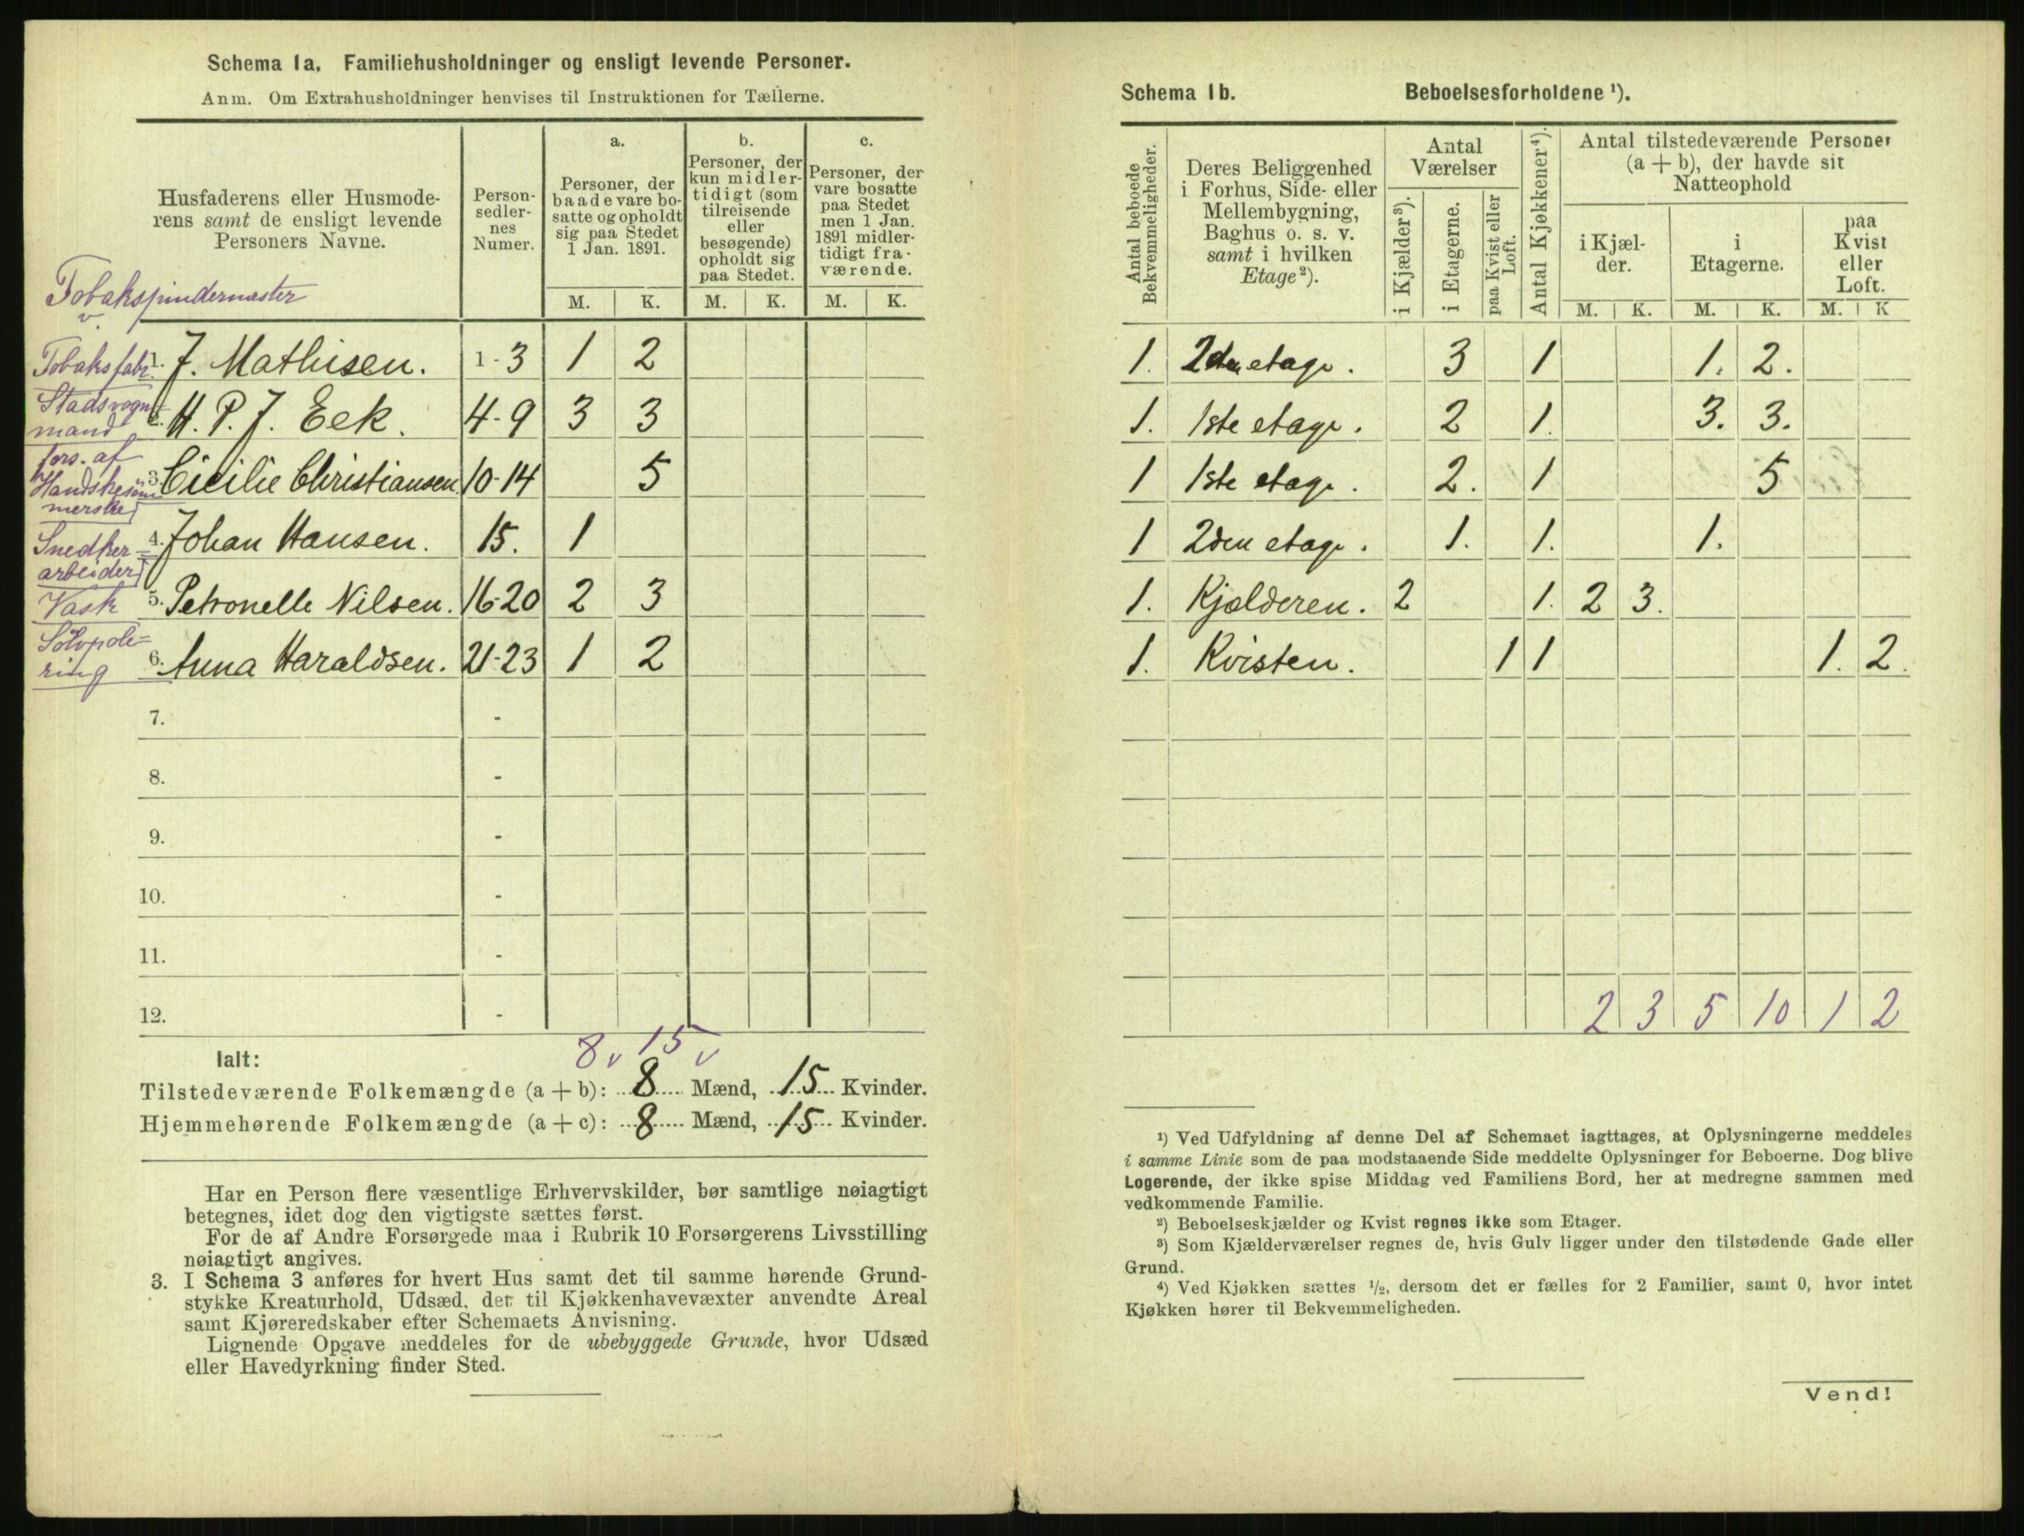 Schema 1a. Familiehusholdninger og ensligt levende Personer.
Anm. Om Extrahusholdninger henvises til Instruktionen for Tællerne.
Husfaderens eller Husmode-
rens samt de ensligt levende
Personers Navne.
Person-
sedler-
nes
Numer.
a.
Personer, der
baade vare bo-
satte og opholdt
sig paa Stedet
1 Jan. 1891.
b.
Personer, der
kun midler-
tidigt (som
tilreisende
eller
besøgende)
opholdt sig
paa Stedet.
c.
Personer, der
vare bosatte
paa Stedet
men 1 Jan.
1891 midler-
tidigt fra-
værende.
M. K. M. K. M. K.
Tobakspindermester
v.
Tobaksfabr. 1. J. Mathisen. 1-3 1 2
Stadsvogn-
mand 2. H. P. J. Eek. 4-9 3 3
fors. af
Handskesøm
merske 3. Cicilie Christiansen 10-14 5
Snedker=
arbeider 4. Johan Hansen. 15. 1
Vask 5. Petronelle Nilsen. 16-20 2 3
Sølvpole=
ring 6. Anna Haraldsen. 21-23 1 2
7. -
8. -
9. -
10. -
11. -
12. -
8 v 15 v
Ialt:
Tilstedeværende Folkemængde (a + b): 8 Mænd, 15 Kvinder.
Hjemmehørende Folkemængde (a + c): 8 Mænd, 15 Kvinder.
Har en Person flere væsentlige Erhvervskilder, bør samtlige nøiagtigt
betegnes, idet dog den vigtigste sættes først.
For de af Andre Forsørgede maa i Rubrik 10 Forsørgerens Livsstilling
nøiagtigt angives.
3. I Schema 3 anføres for hvert Hus samt det til samme hørende Grund-
stykke Kreaturhold, Udsæd, det til Kjøkkenhavevæxter anvendte Areal
samt Kjøreredskaber efter Schemaets Anvisning.
Lignende Opgave meddeles for de ubebyggede Grunde, hvor Udsæd
eller Havedyrkning finder Sted.
Schema 1b. Beboelsesforholdene ¹).
Antal beboede
Bekvemmeligheder.
Deres Beliggenhed
i Forhus, Side- eller
Mellembygning,
Baghus o. s. v.
samt i hvilken
Etage²).
Antal
Værelser
i Kjælder³).
i Etagerne.
paa Kvist eller
Loft.
Antal Kjøkkener⁴).
Antal tilstedeværende Personer
(a + b), der havde sit
Natteophold
i Kjæl-
der.
i
Etagerne.
paa
Kvist
eller
Loft.
M. K. M. K. M. K
1. 2den etage. 3 1 1. 2.
1. 1ste etage. 2 1. 3. 3.
1 1ste etage. 2. 1 5
1 2den etage. 1. 1. 1.
1. Kjælderen. 2 1. 2 3.
1. Kvisten. 1 1 1. 2.
2 3 5 10 1 2
¹) Ved Udfyldning af denne Del af Schemaet iagttages, at Oplysningerne meddeles
i samme Linie som de paa modstaaende Side meddelte Oplysninger for Beboerne. Dog blive
Logerende, der ikke spise Middag ved Familiens Bord, her at medregne sammen med
vedkommende Familie.
²) Beboelseskjælder og Kvist regnes ikke som Etager.
³) Som Kjælderværelser regnes de, hvis Gulv ligger under den tilstødende Gade eller
Grund.
⁴) Ved Kjøkken sættes ½, dersom det er fælles for 2 Familier, samt 0, hvor intet
Kjøkken hører til Bekvemmeligheden.
Vend!